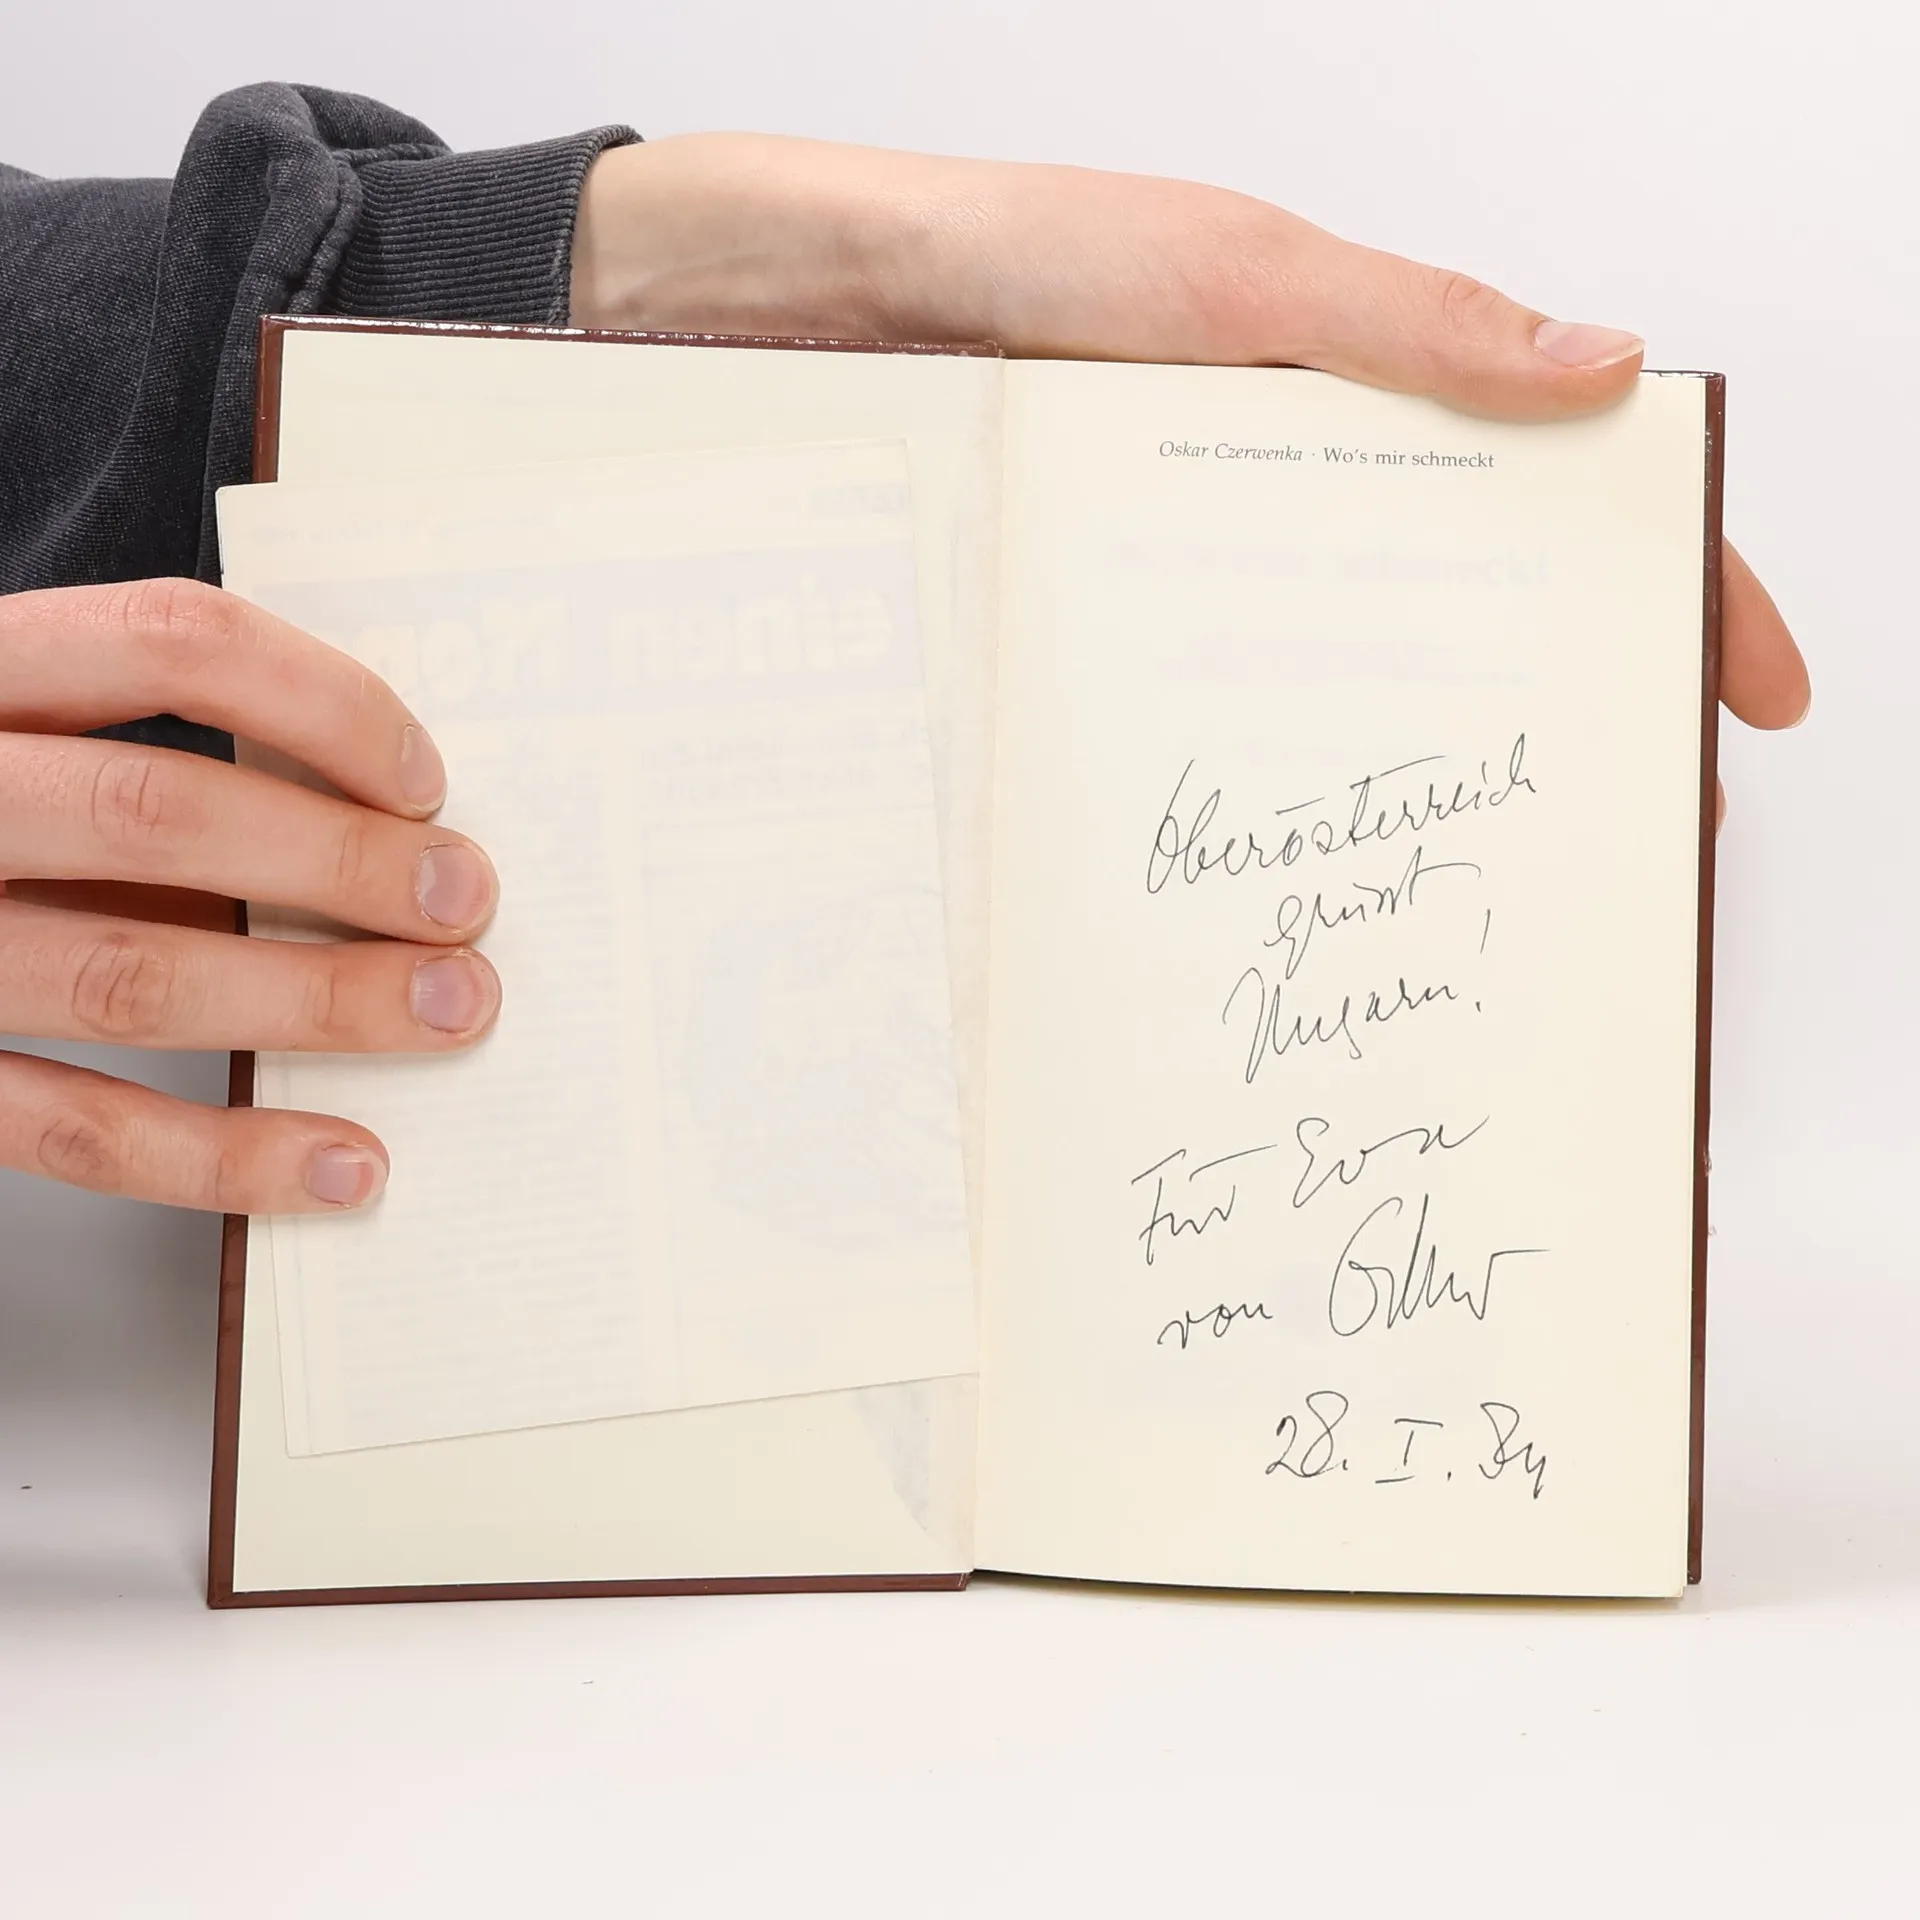 Oskar Czerwenka · Wo's mir schmeckt
Oberösterreich
grüsst
Ungarn!
Für Eva
von
28. I. 84